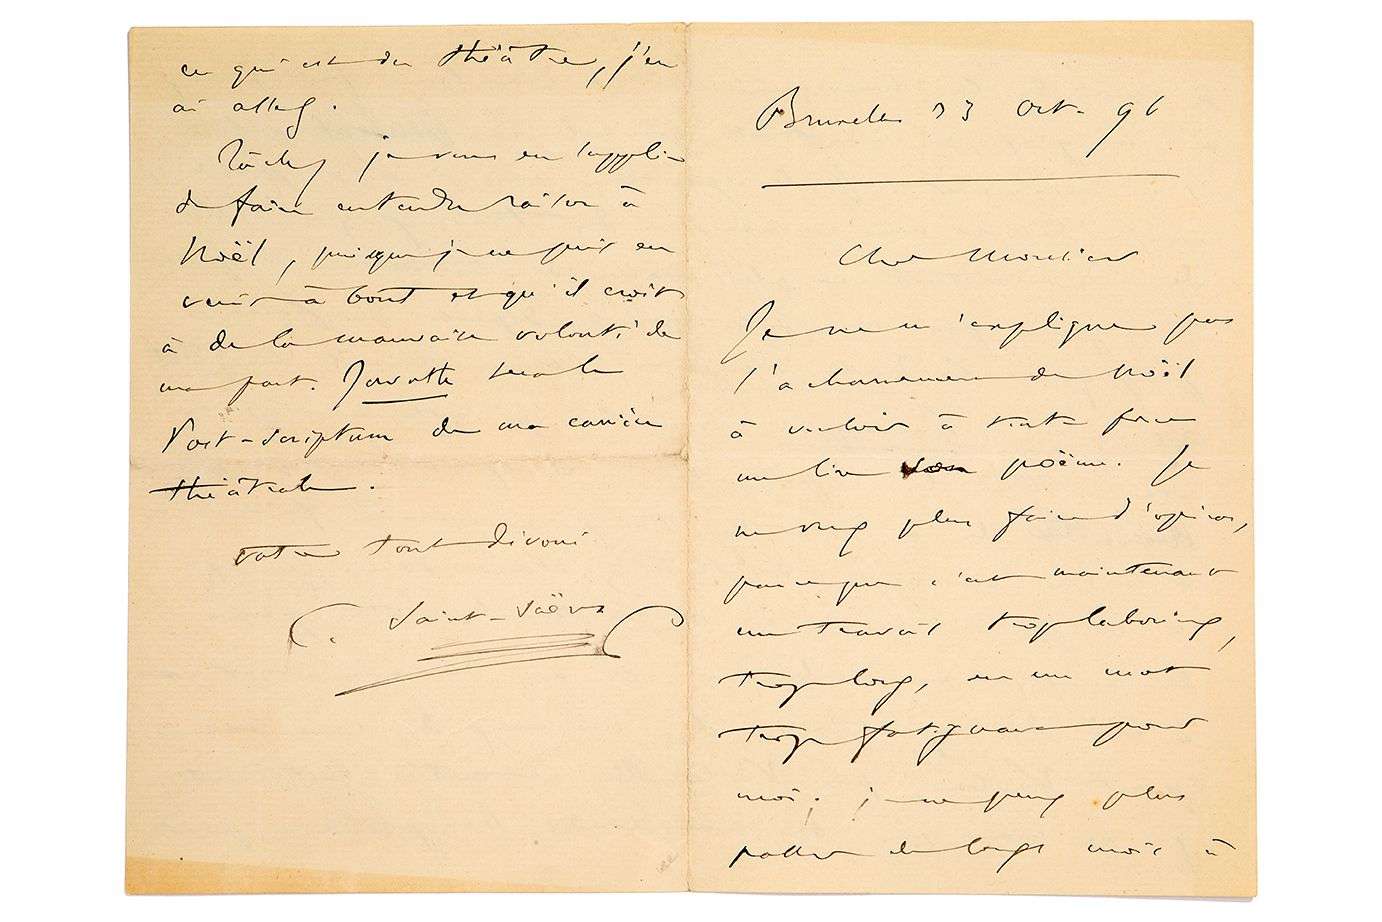 Bruxelles 23 Oct. 96
Cher Monsieur
Je ne m'explique pas
l'acharnement de Noël
à vouloir à toute force
me lire son poëme. Je
ne veux plus faire d'opéras,
parceque c'est maintenant
un travail trop laborieux,
trop long, en un mot
trop fatiguant pour
moi ; je ne peux plus
passer de longs mois à
ce qui est du théâtre, j'en
ai assez.
Tâchez je vous en supplie
de faire entendre raison à
Noël, puisque je ne puis en
venir à bout et qu'il croit
à de la mauvaise volonté de
ma part. Javotte sera le
Post-scriptum de ma carrière
théâtrale.
votre tout dévoué
C. Saint-Saëns